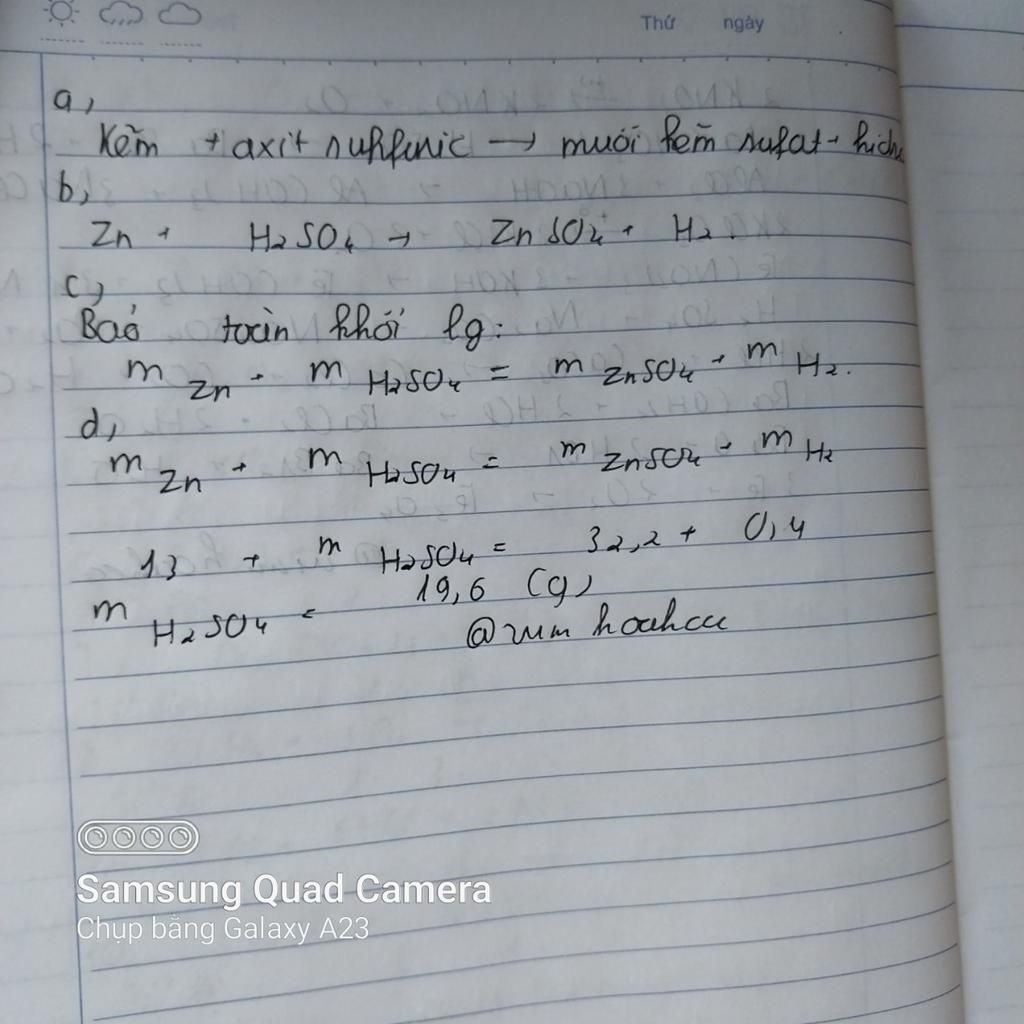 Thứ ngày
a,
Kẽm + axit sunfuric → muối kẽm sufat +
b,
Zn + H2SO4 → ZnSO4 + H2.
c,
Bảo toàn khối lg:
m Zn + m H2SO4 = m ZnSO4 + m H2.
d,
m Zn + m H2SO4 = m ZnSO4 + m H2
13 + m H2SO4 = 32,2 + 0,4
m H2SO4 = 19,6 (g)
Samsung Quad Camera
Chụp bằng Galaxy A23